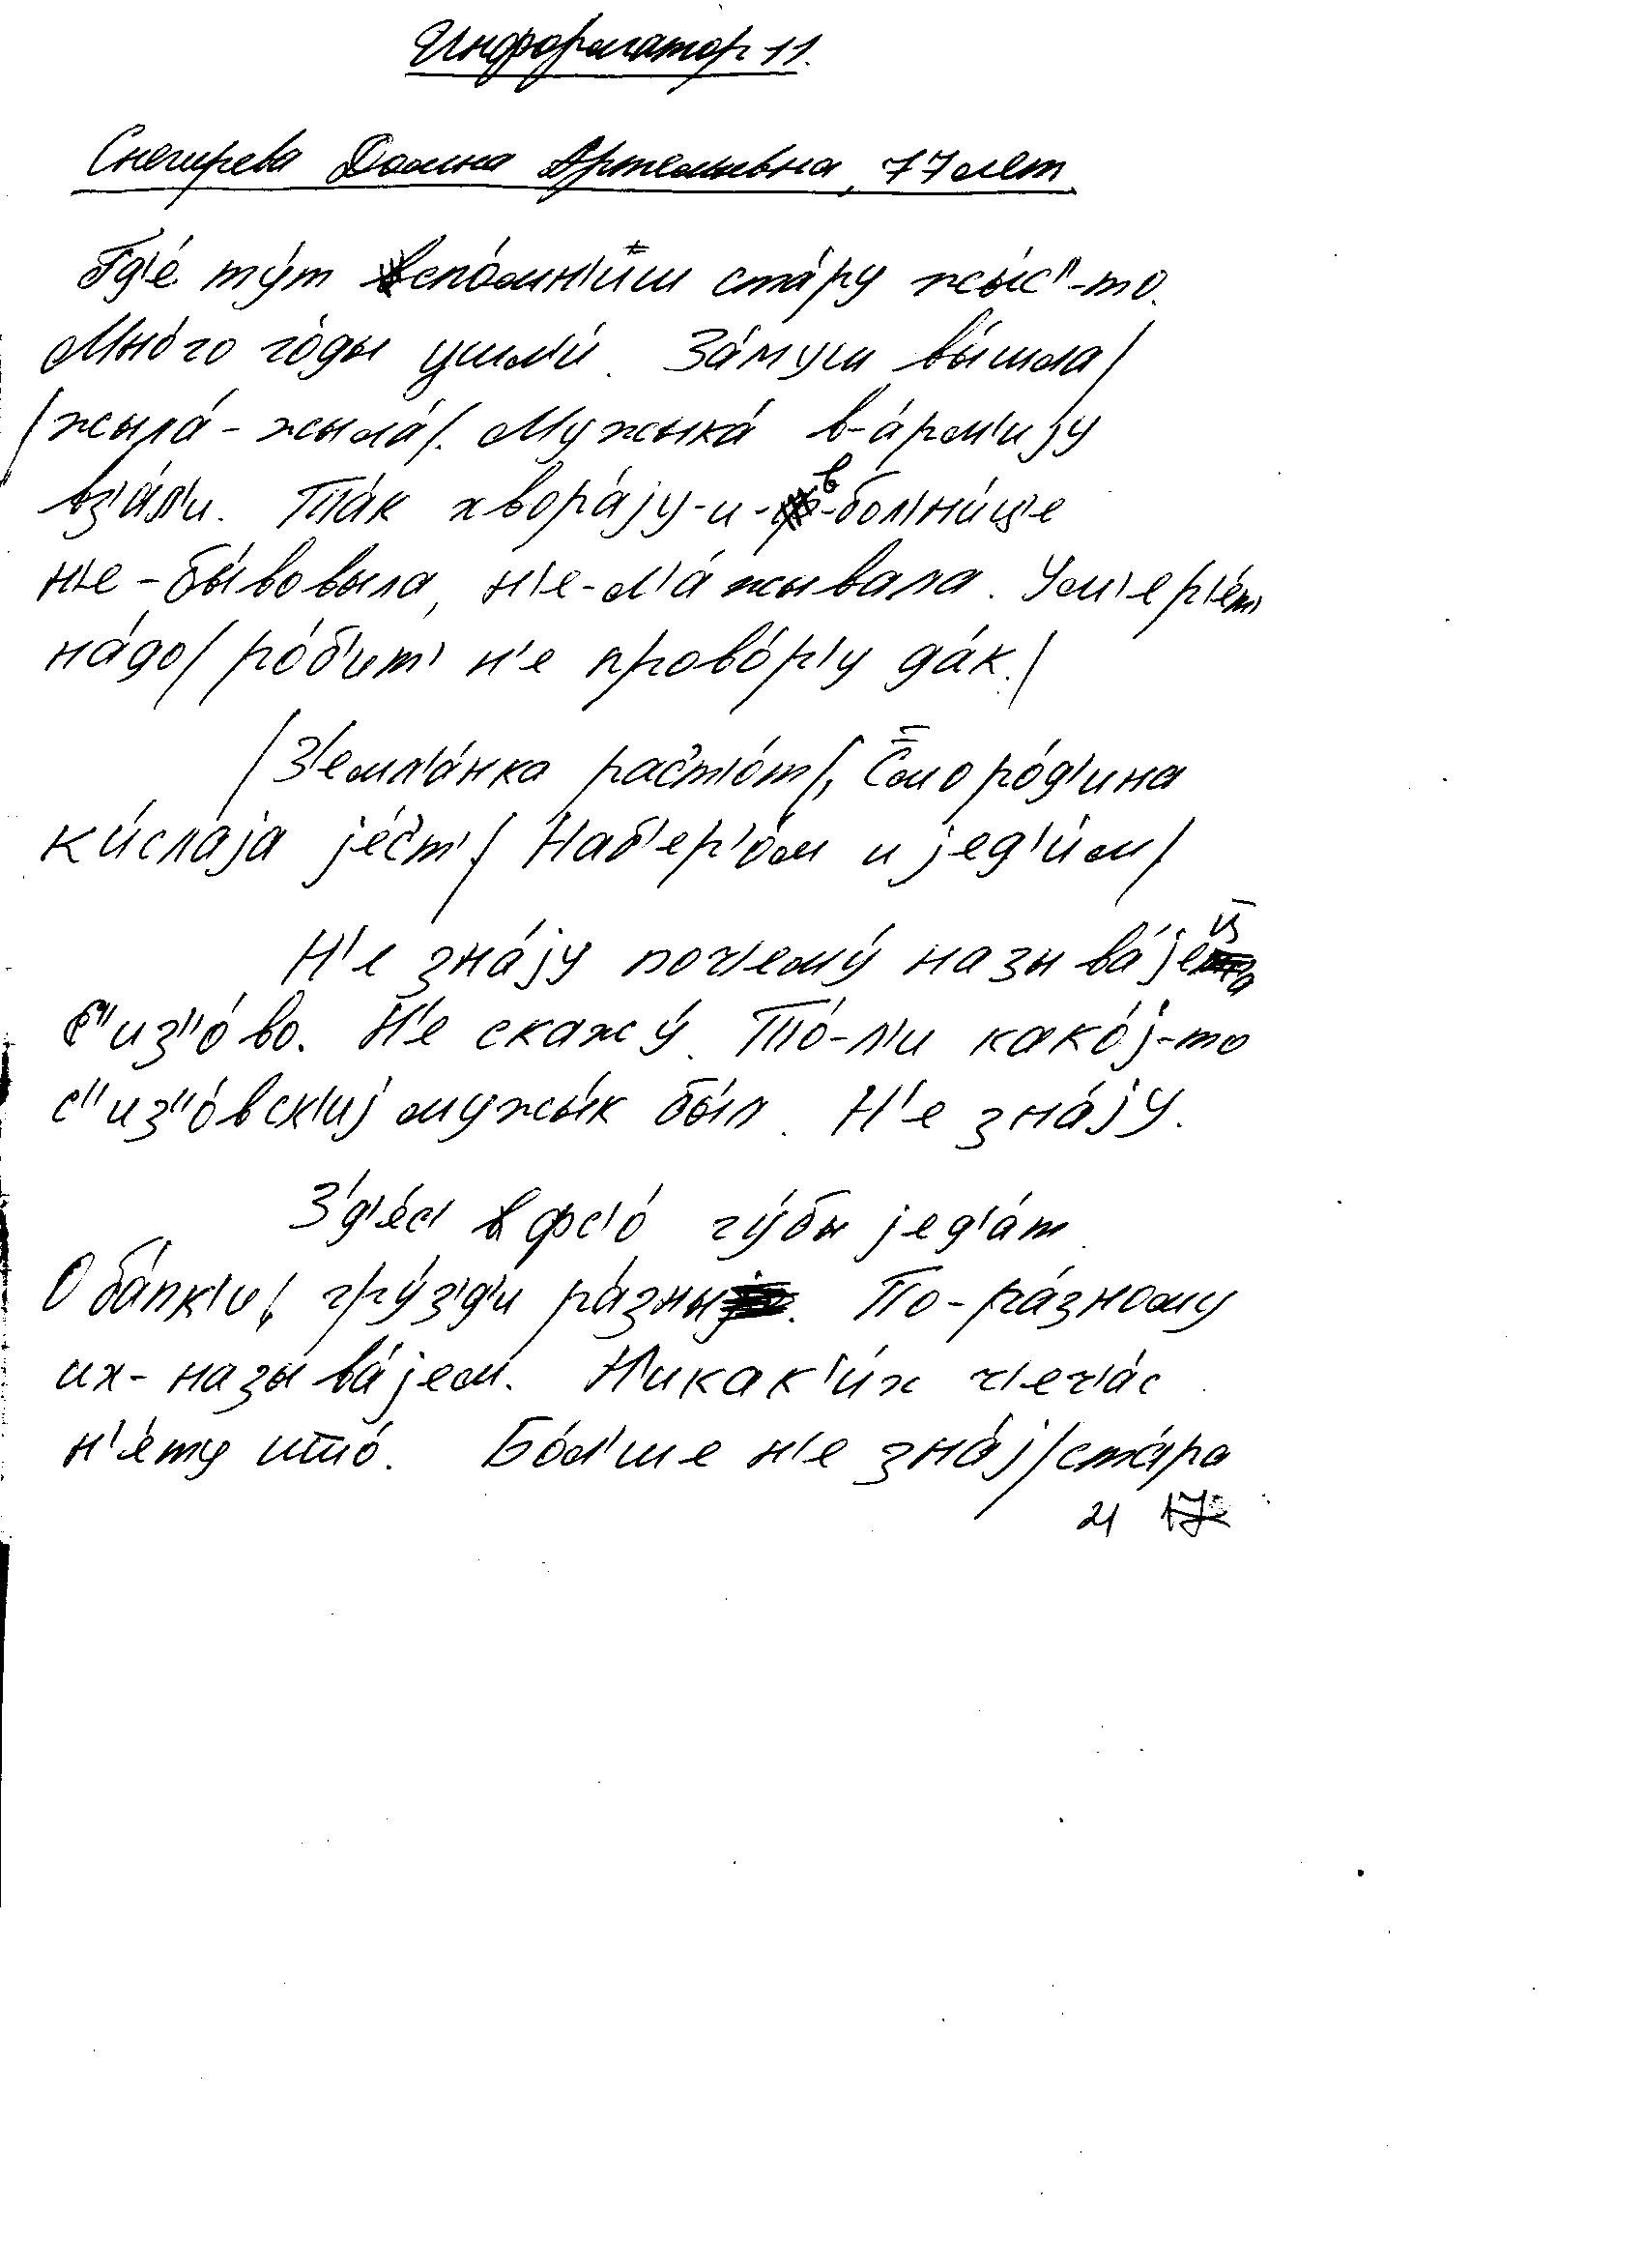 Информатор 11.
Снегирева Домна Артемьевна, 77 лет
Гд'е́ ту́т спо́мн'иш ста́ру жы́с"-то.
Мно́го го́ды ушл'и́. За́муш вы́шла/
/жыла́-жыла́/. Мужыка́ в-а́рм'иjу
вз'а́л'и. Та́к хвора́jу-и-в-бол'н'и́це
н'е-бы́вовыла, н'е-л'а́жывала. Ум'ер'е́т'
на́до/ ро́б'ит' н'е прово́р'у да́к./
/З'емл'а́нка раст'о́т/, Сморо́д'ина
ки́слаjа jе́ст'/ Наб'ер'о́м и jед'и́м/
Н'е зна́jу поч'ему́ называ́jеца
С"из"о́во. Н'е скажу́. То́-л'и како́j-то
с"из"о́вск'иj мужы́к бы́л. Н'е зна́jу.
З'д'е́с' фс'о́ гу́бы jед'а́т.
Оба́пк'и, гру́з'д'и ра́зны. По-ра́зному
их-называ́jем. Н'икак'и́х ч'еч'а́с
н'е́ту што́. Бо́л'ше н'е зна́j/ста́ра
21